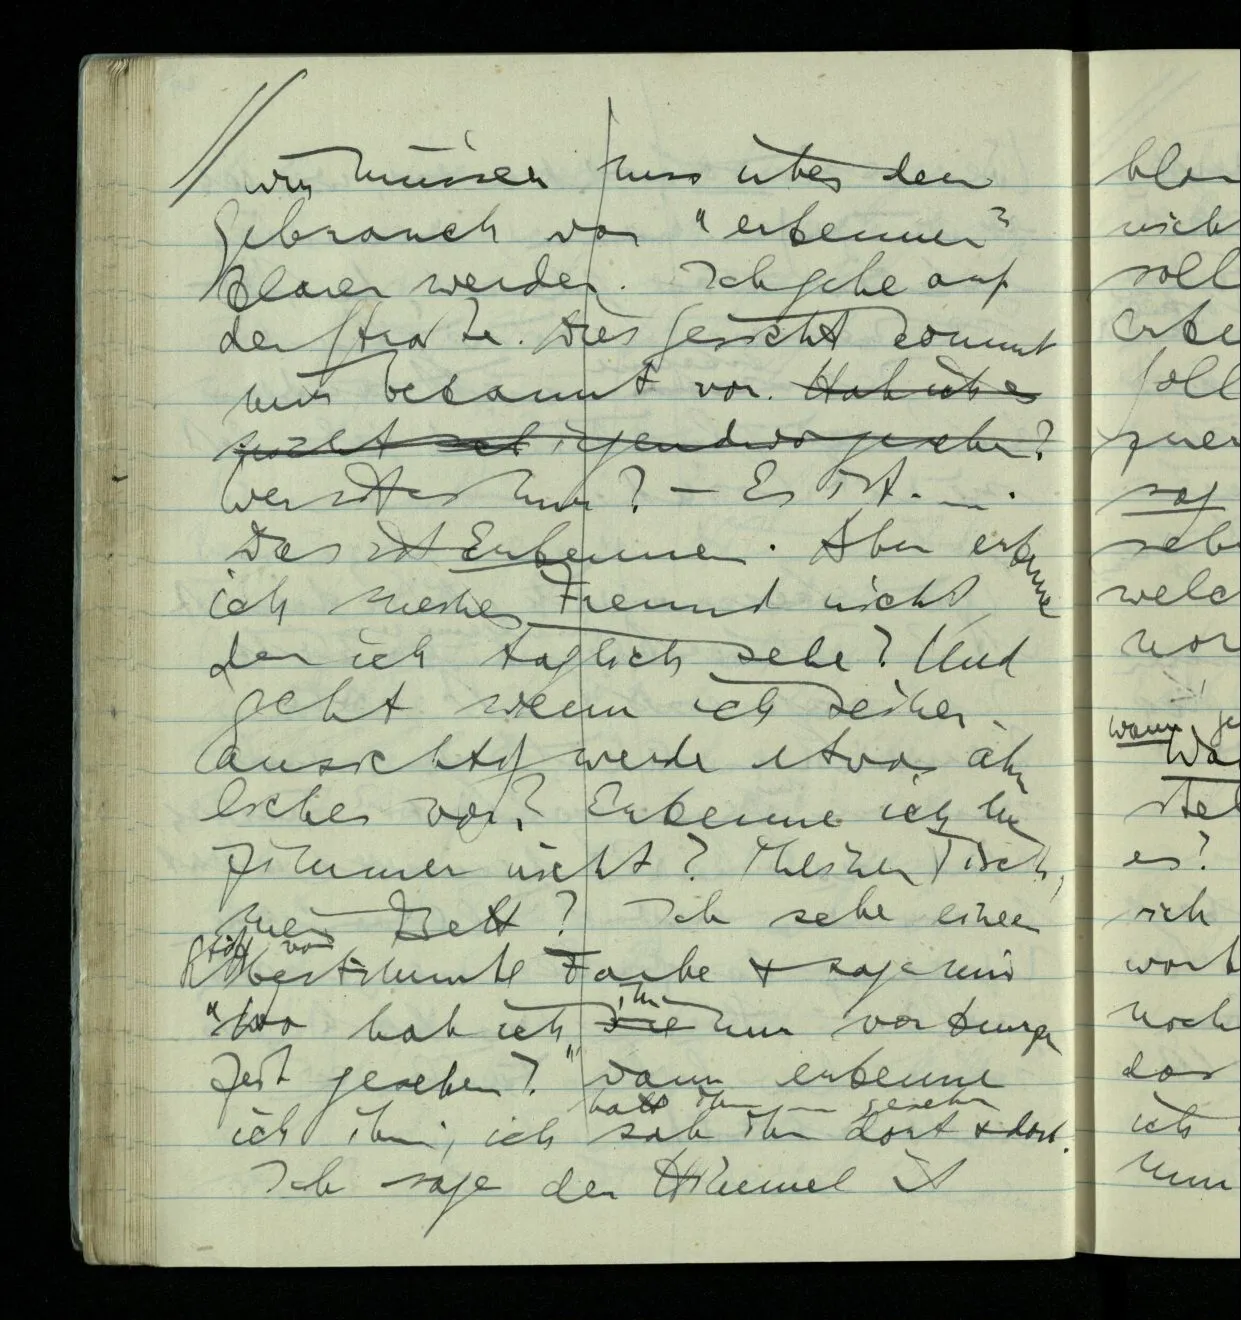 Wir müssen uns über den
Gebrauch von "erkennen"
klarer werden. Ich gehe auf
der Straße. Dies Gesicht kommt
mir bekannt vor. Hab ich es
nicht irgendwo gesehen?
Wer ist es nur? — Es ist ....
Das ist Erkennen. Aber erkenne
ich meinen Freund nicht
den ich täglich sehe? Und
geht wenn ich seiner
ansichtig werde etwas ähn
liches vor? Erkenne ich mein
Zimmer nicht? Meinen Tisch,
mein Bett? Ich sehe einen
Stoff von
bestimmte Farbe & sage mir
ihn
"Wo hab ich die nur vor kurzer
Zeit gesehen?" dann erkenne
hatte ihn gesehen
ich ihn; ich sah ihn dort & dort.
Ich sage der Himmel ist
blau
nich
soll
Erke
soll
zuer
sag
sehe
welc
vor
wann ge
Wa
stel
es?
ich
wort
noch
das
ich
nun